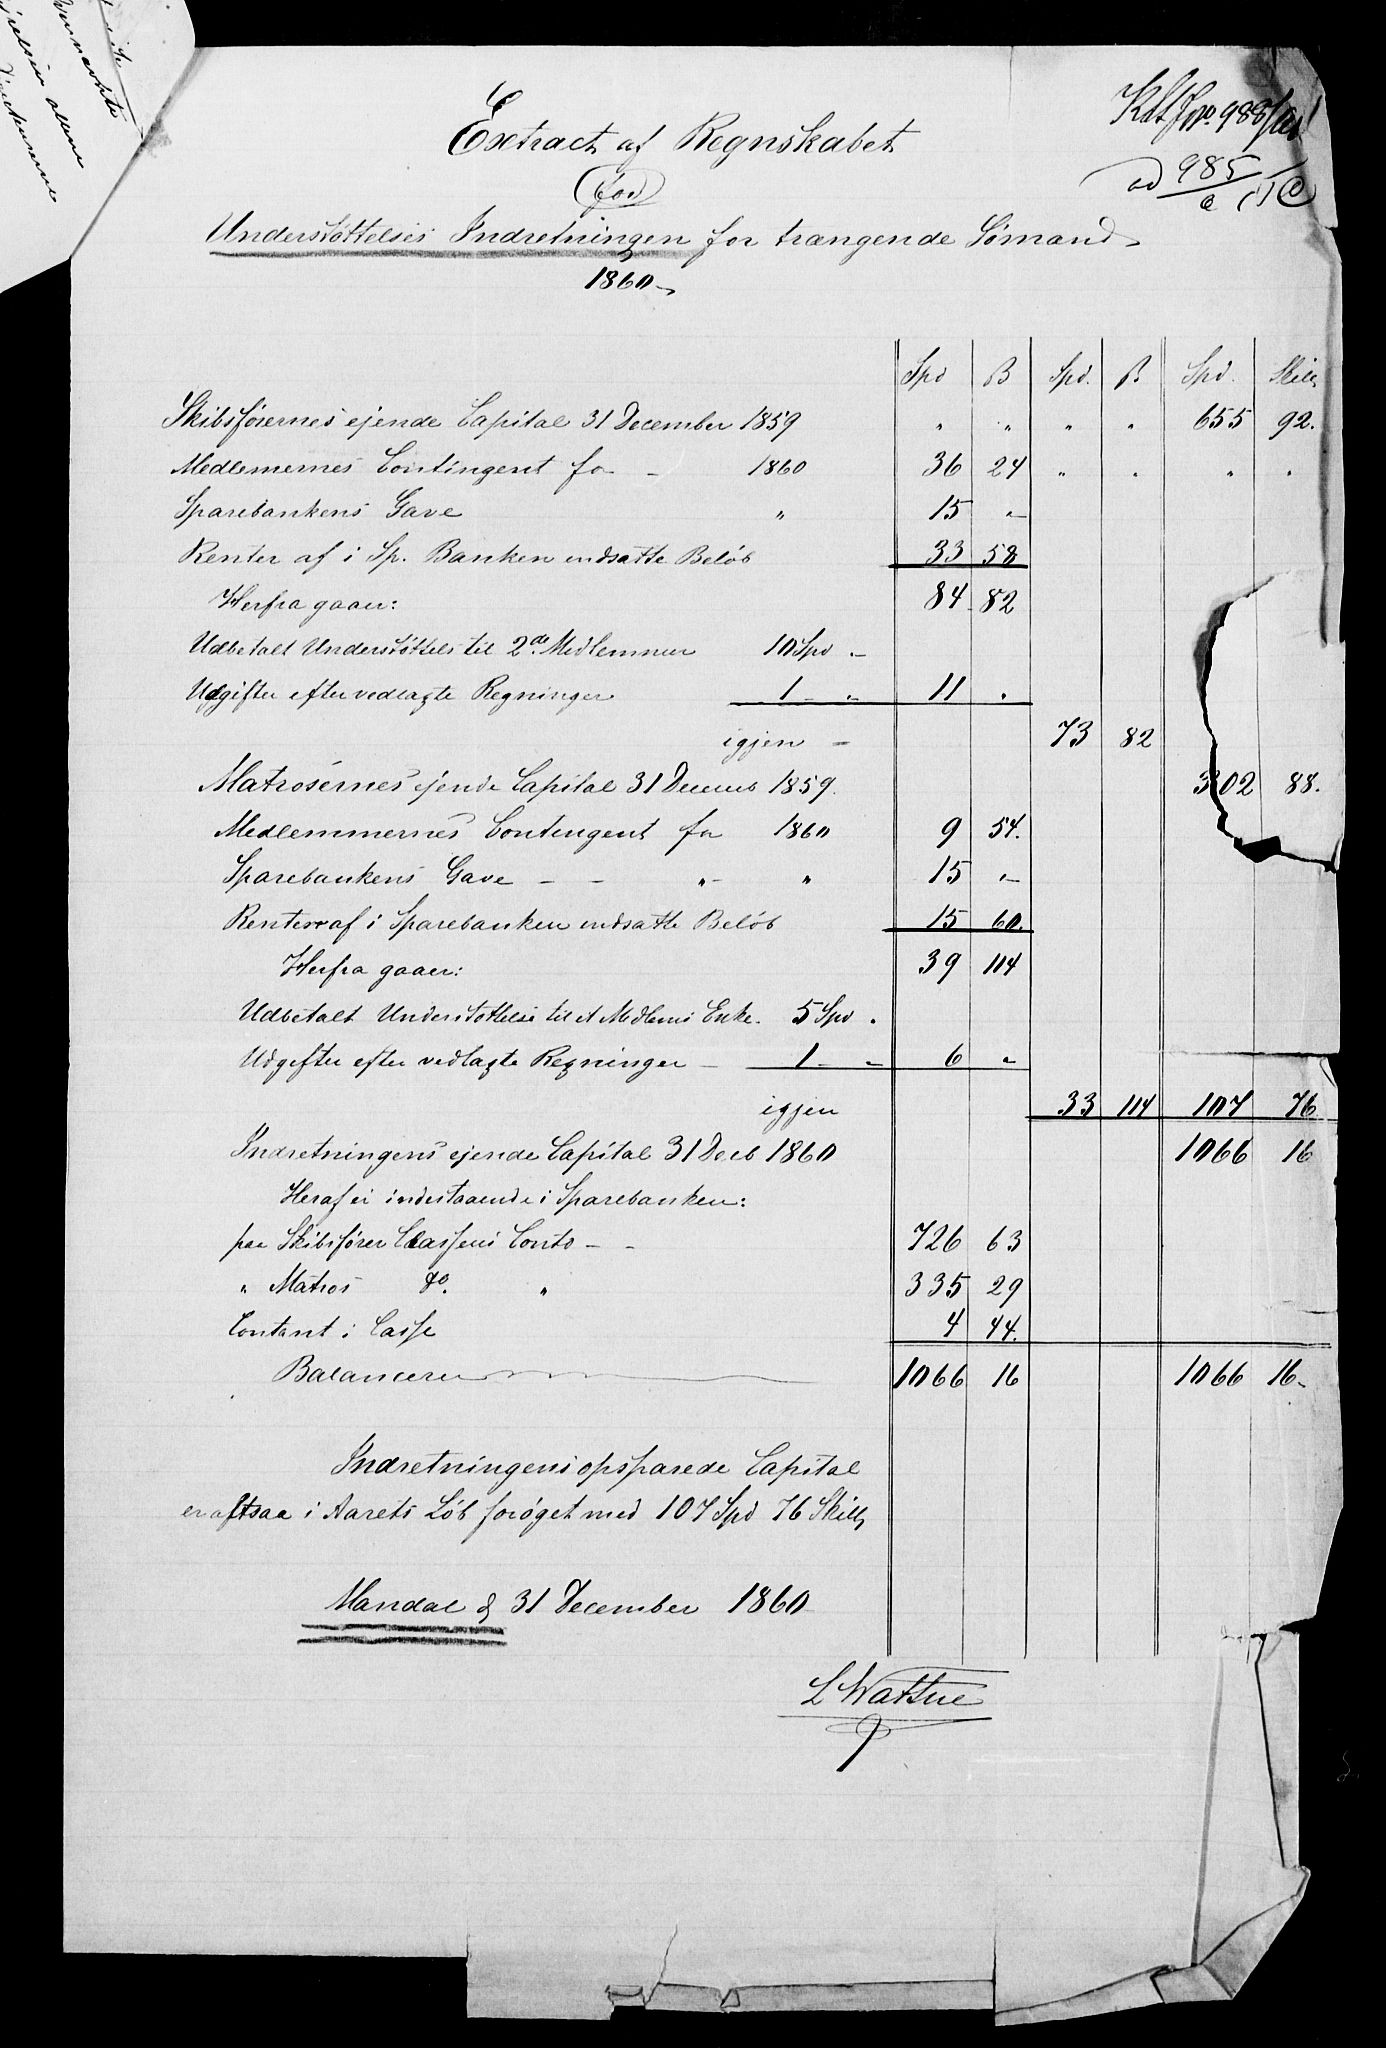 Extract af Regnskabet
for
Understøttelses Indretningen for trængende Sømænd
1860
ad 985
Spd B Spd. B Spd. Skill
Skibsførernes ejende Capital 31 December 1859 " " " " 655 92.
Medlemernes Contingent for - 1860 36 24 " " " "
Sparebankens Gave " 15 "
Renter af i Sp. Banken indsatte Beløb 33 58
Herfra gaaer: 84 82
Udbetalt Understøttels til 2de Medlemmer 10 Spd "
Udgifter efter vedlagte Regninger 1 - " 11 "
igjen - 73 82
Matrosernes ejende Capital 31 Decemb 1859. 302 88.
Medlemmernes Contingent for 1860 9 54.
Sparebankens Gave - - " - " 15 "
Renter af i Sparebanken indsatte Beløb 15 60.
Herfra gaaer: 39 114
Udbetalt Understøttelse til et Medlems Enke. 5 Spd "
Udgifter efter vedlagte Regninger - 1 - " 6 "
igjen 33 114 107 76
Indretningens ejende Capital 31 Decb 1860 1066 16
Heraf er indestaaende i Sparebanken:
paa Skibsfører Classens Conto - - 726 63
" Matros do. " 335 29
Contant i Casse 4 44.
Balancerer 1066 16 1066 16
Indretningens opsparede Capital
er altsaa i Aarets Løb forøget med 107 Spd 76 Skill
Mandal d 31 December 1860
L Wattne